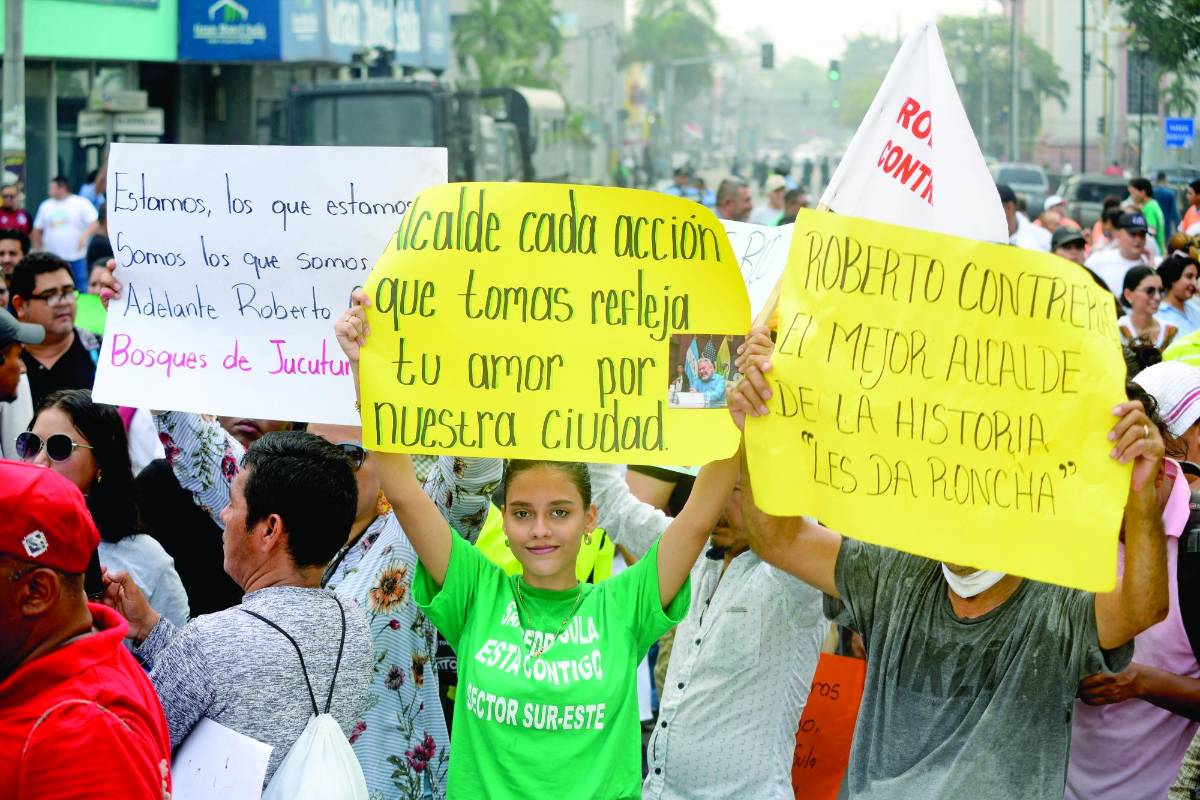 Gran Hotel Sula
Gran Hotel Sula
Estamos, los que estamos
Somos los que somos
Adelante Roberto
Bosques de Jucutum
Alcalde cada acción
que tomas refleja
tu amor por
nuestra ciudad.
CONTR
ROBERTO CONTRERAS
EL MEJOR ALCALDE
DE LA HISTORIA
"LES DA RONCHA"
SAN PEDRO SULA
ESTA CONTIGO
SECTOR SUR-ESTE